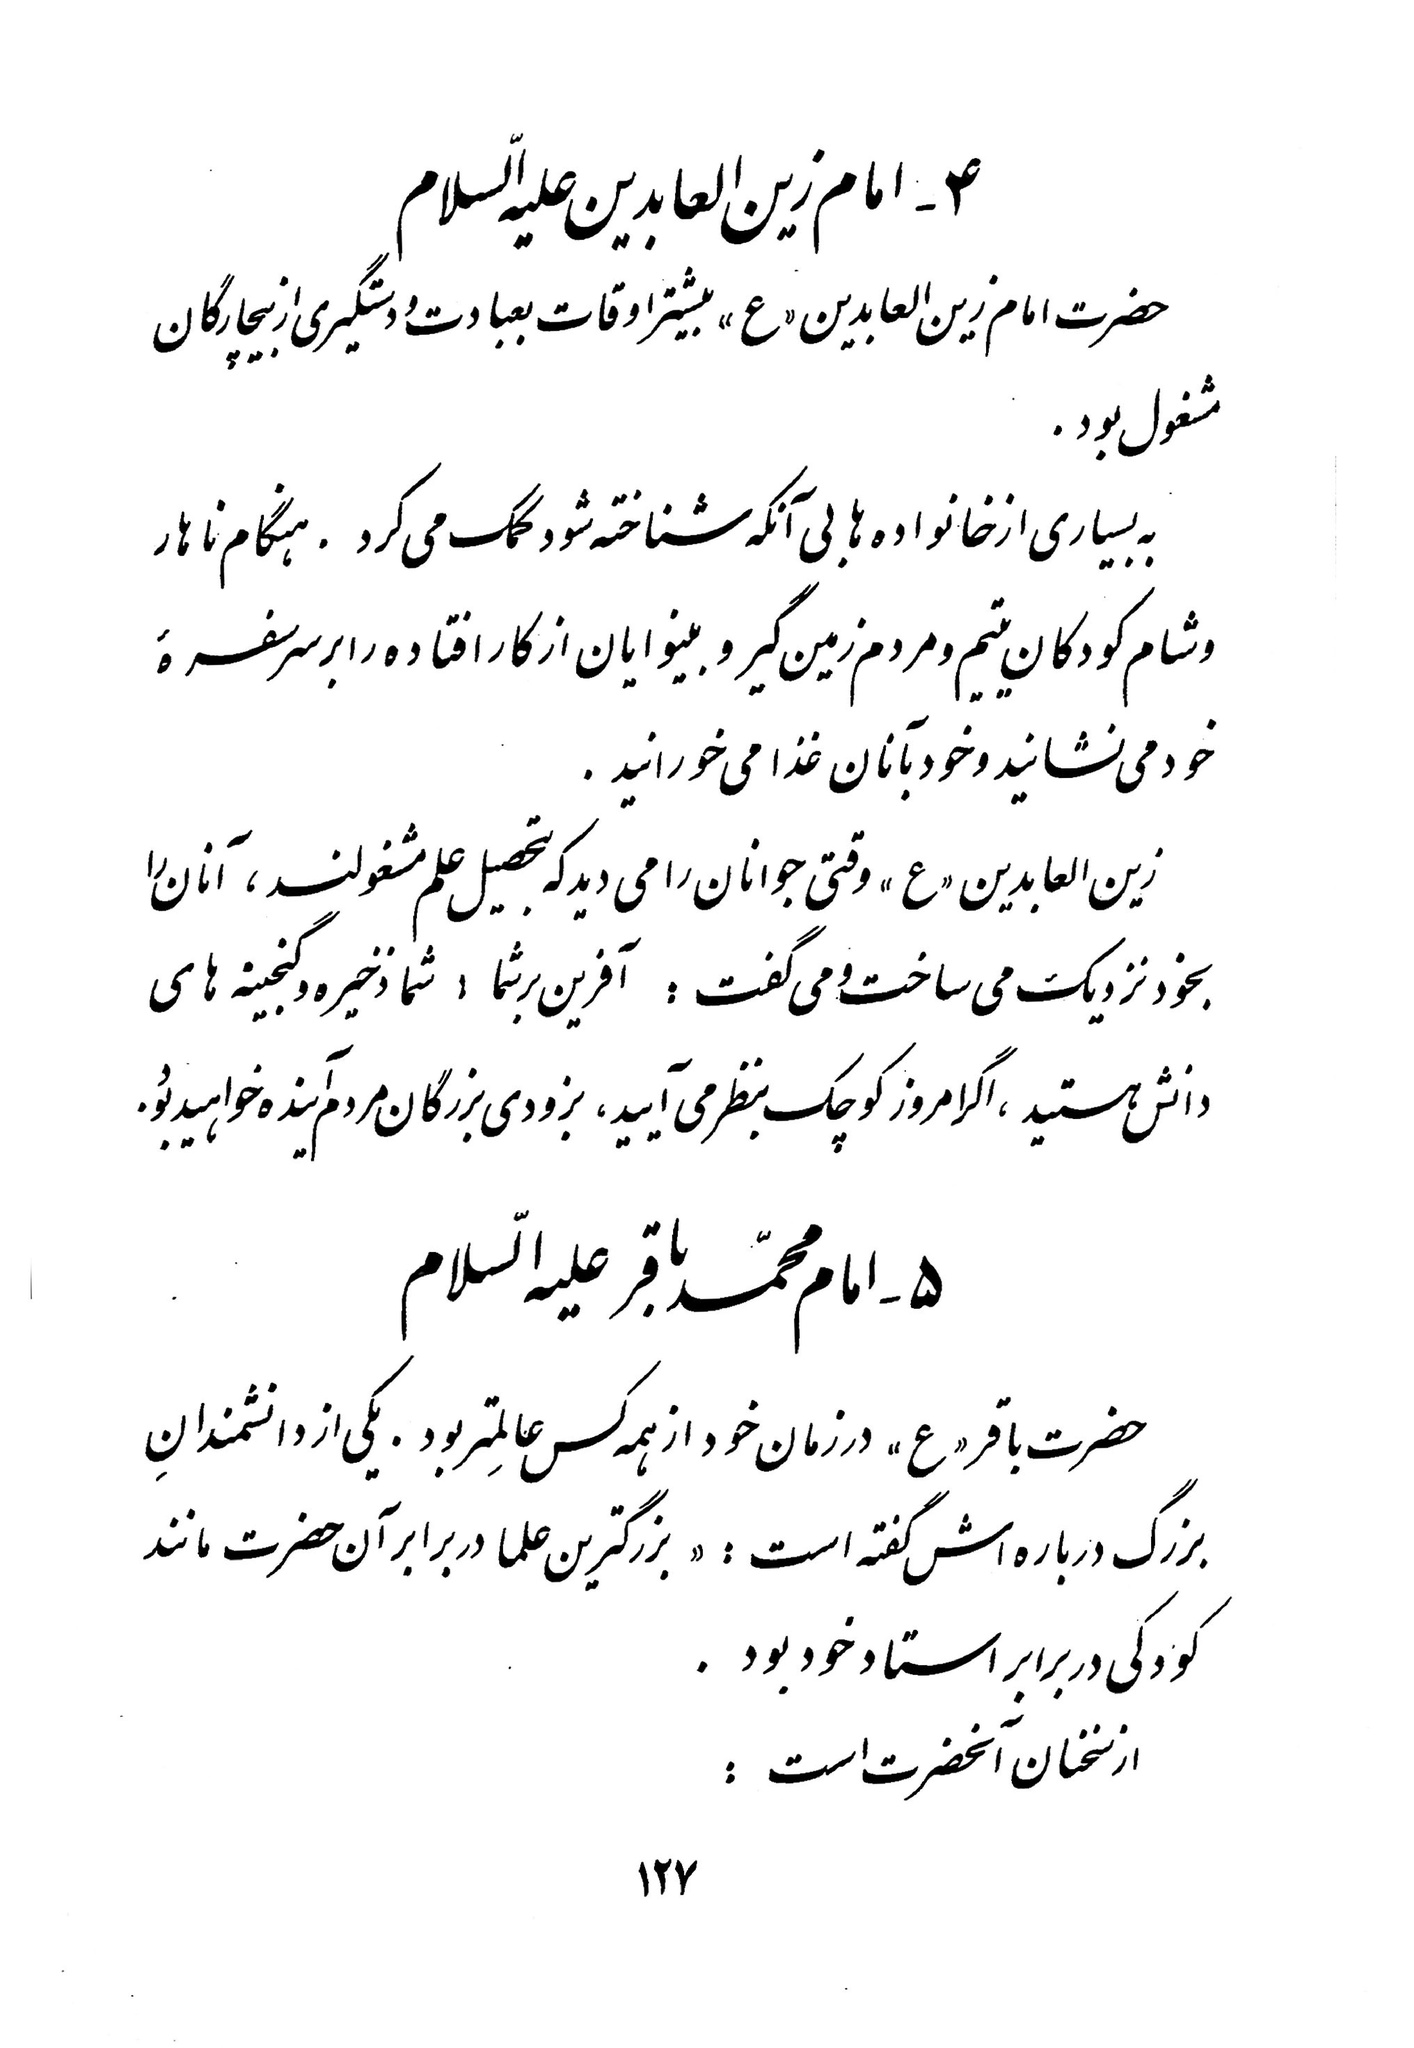 ۴ـ امام زین العابدین علیه السّلام
حضرت امام زین العابدین «ع» بیشتر اوقات بعبادت و دستگیری از بیچارگان
مشغول بود .
به بسیاری از خانواده ها بی آنکه شناخته شود کمک می کرد . هنگام ناهار
و شام کودکان یتیم و مردم زمین گیر و بینوایان از کار افتاده را بر سر سفرهٔ
خود می نشانید و خود بآنان غذا می خورانید .
زین العابدین «ع» وقتی جوانان را می دید که بتحصیل علم مشغولند ، آنان را
بخود نزدیک می ساخت و می گفت : آفرین بر شما ! شما ذخیره و گنجینه های
دانش هستید ، اگر امروز کوچک بنظر می آیید ، بزودی بزرگان مردم آینده خواهید بُود .
۵ ـ امام محمّد باقر علیه السّلام
حضرت باقر «ع» در زمان خود از همه کس عالمِتر بود . یکی از دانشمندانِ
بزرگ درباره اش گفته است : « بزرگترین علما در برابر آن حضرت مانند
کودکی در برابر استاد خود بود .
از سخنان آنحضرت است :
۱۲۷